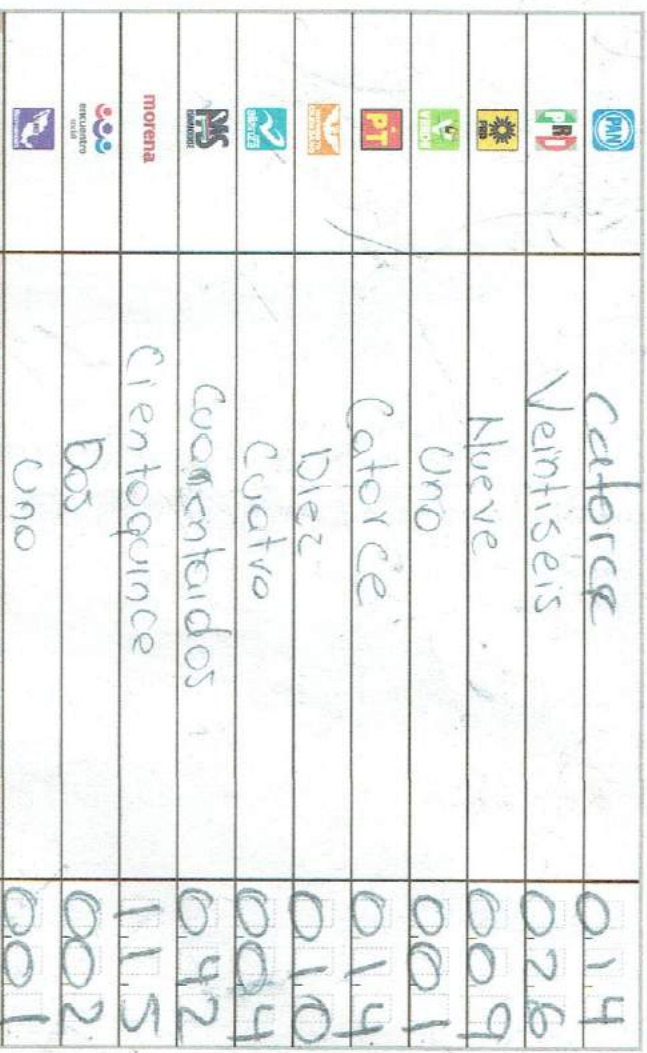 PAN Catorce 014
PRI Veintiseis 026
PRD Nueve 009
VERDE Uno 001
PT Catorce 014
Diez 010
alianza Cuatro 004
Cuarentaidos 042
morena Cientoquince 115
encuentro social Dos 002
Uno 001